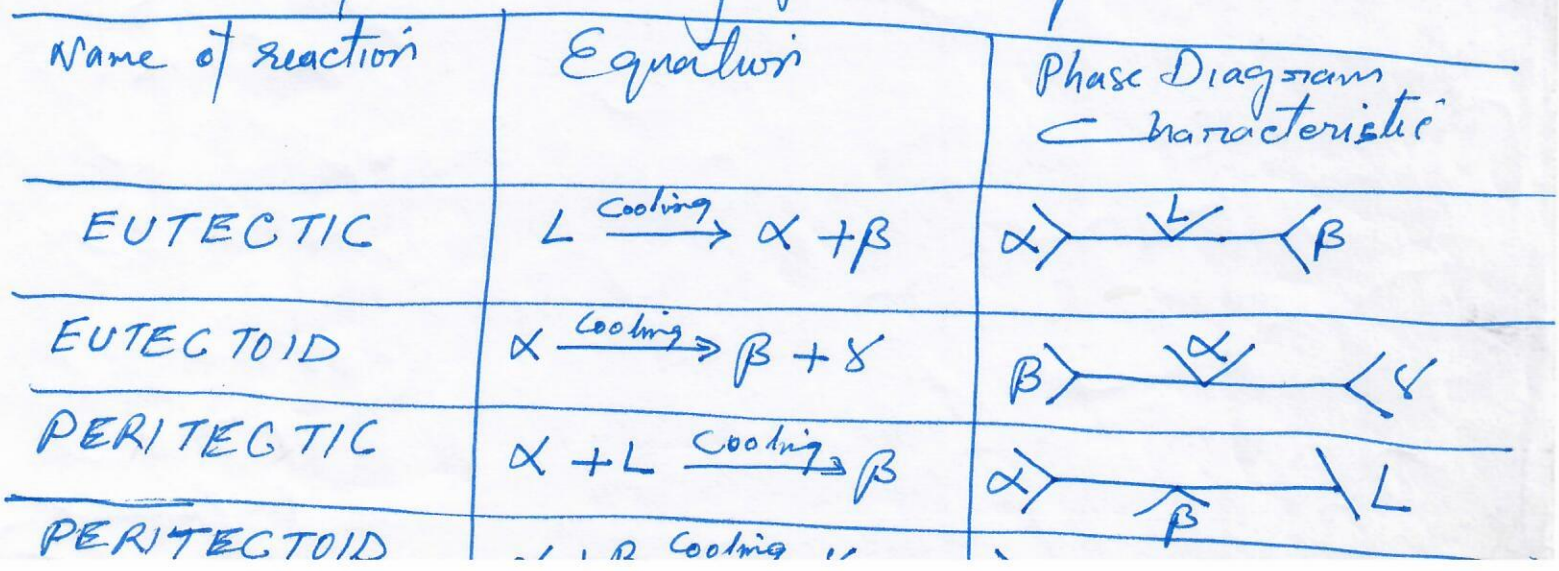 Name of reaction Equation Phase Diagram
Characteristic
EUTECTIC L Cooling → α + β α L β
EUTECTOID α Cooling → β + γ β α γ
PERITECTIC α + L Cooling → β α β L
PERITECTOID Cooling